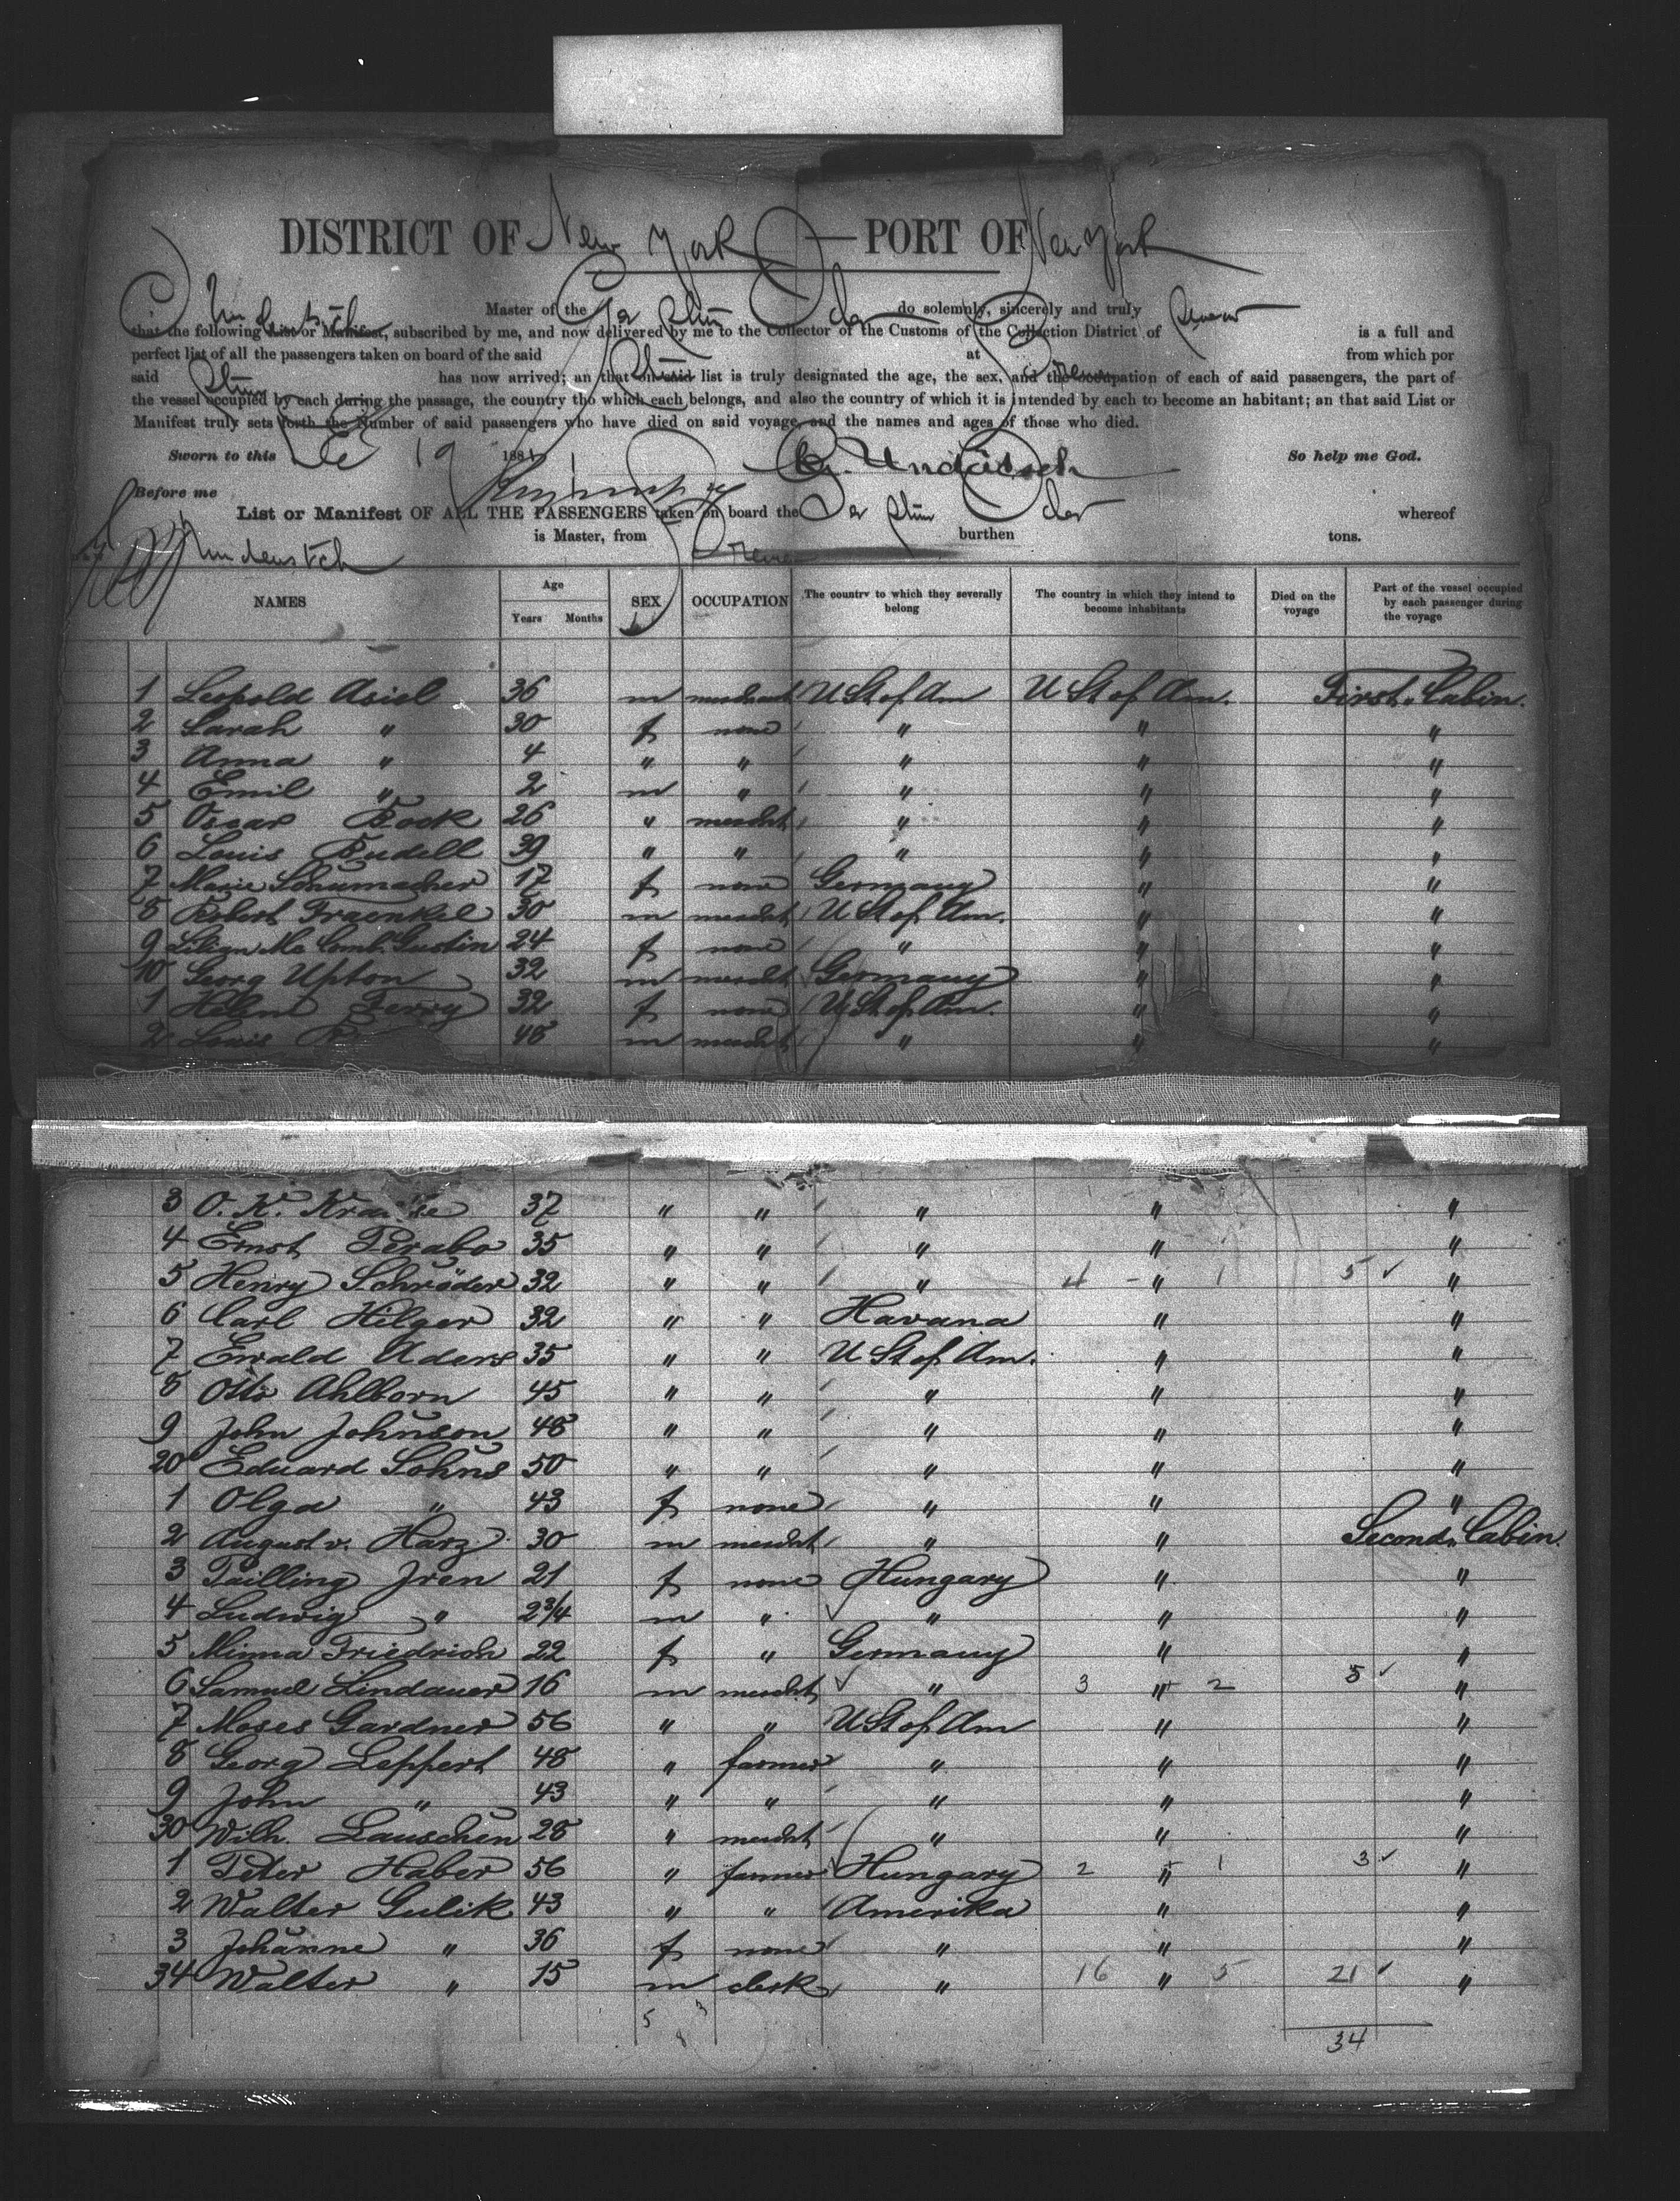 DISTRICT OF New York PORT OF New York
Master of the Ger Stm Oder do solemnly, sincerely and truly swear
that the following List or Manifest, subscribed by me, and now delivered by me to the Collector of the Customs of the Collection District of is a full and
perfect list of all the passengers taken on board of the said Stmr at Bremen from which por
said Stmr has now arrived; an that on said list is truly designated the age, the sex, and the occupation of each of said passengers, the part of
the vessel occupied by each during the passage, the country tho which each belongs, and also the country of which it is intended by each to become an habitant; an that said List or
Manifest truly sets forth the Number of said passengers who have died on said voyage, and the names and ages of those who died.
Sworn to this 19 188 So help me God.
Before me
List or Manifest OF ALL THE PASSENGERS taken on board the Ger Stm Oder whereof
is Master, from Bremen burthen tons.
NAMES Age Years Months SEX OCCUPATION The country to which they severally belong The country in which they intend to become inhabitants Died on the voyage Part of the vessel occupied by each passenger during the voyage
1 Leopold Asiel 36 m merchant U St of Am U St of Am. First Cabin.
2 Sarah " 30 f none " " "
3 Anna " 4 " " " " "
4 Emil " 2 m " " " "
5 Oscar Bock 26 " mercht " " "
6 Louis Budell 39 " " " " "
7 Marie Schumacher 17 f none Germany " "
8 Robert Fraenkel 30 m mercht U St of Am. " "
9 Lilian Mc Comb. Gustin 24 f none " " "
10 Georg Upton 32 m mercht Germany " "
1 Helene Ferry 32 f none U St of Am. " "
2 Louis 48 m mercht " " "
3 O. K. Krause 37 " " " " "
4 Ernst Perabo 35 " " " " "
5 Henry Schröder 32 " " " 4 - " 1 5 ✓ "
6 Carl Hilger 32 " " Havana " "
7 Ewald Aders 35 " " U St of Am. " "
8 Otto Ahlborn 45 " " " " "
9 John Johnson 48 " " " " "
20 Eduard Sohns 50 " " " " "
1 Olga " 43 f none " " "
2 August v. Harz 30 m mercht " " Second Cabin.
3 Pailling Iren 21 f none Hungary " "
4 Ludwig " 2 3/4 m " " " "
5 Minna Friedrich 22 f " Germany " "
6 Samuel Lindauer 16 m mercht " 3 " 2 5 ✓ "
7 Moses Gardner 56 " " U St of Am " "
8 Georg Leppert 48 " farmer " " "
9 John " 43 " " " " "
30 Wilh. Lauschen 28 " mercht " " "
1 Peter Haber 56 " farmer Hungary 2 " 1 3 ✓ "
2 Walter Gulik 43 " " Amerika " "
3 Johanne " 36 f none " " "
34 Walter " 15 m clerk " 16 " 5 21 ✓ "
5 3
8
34